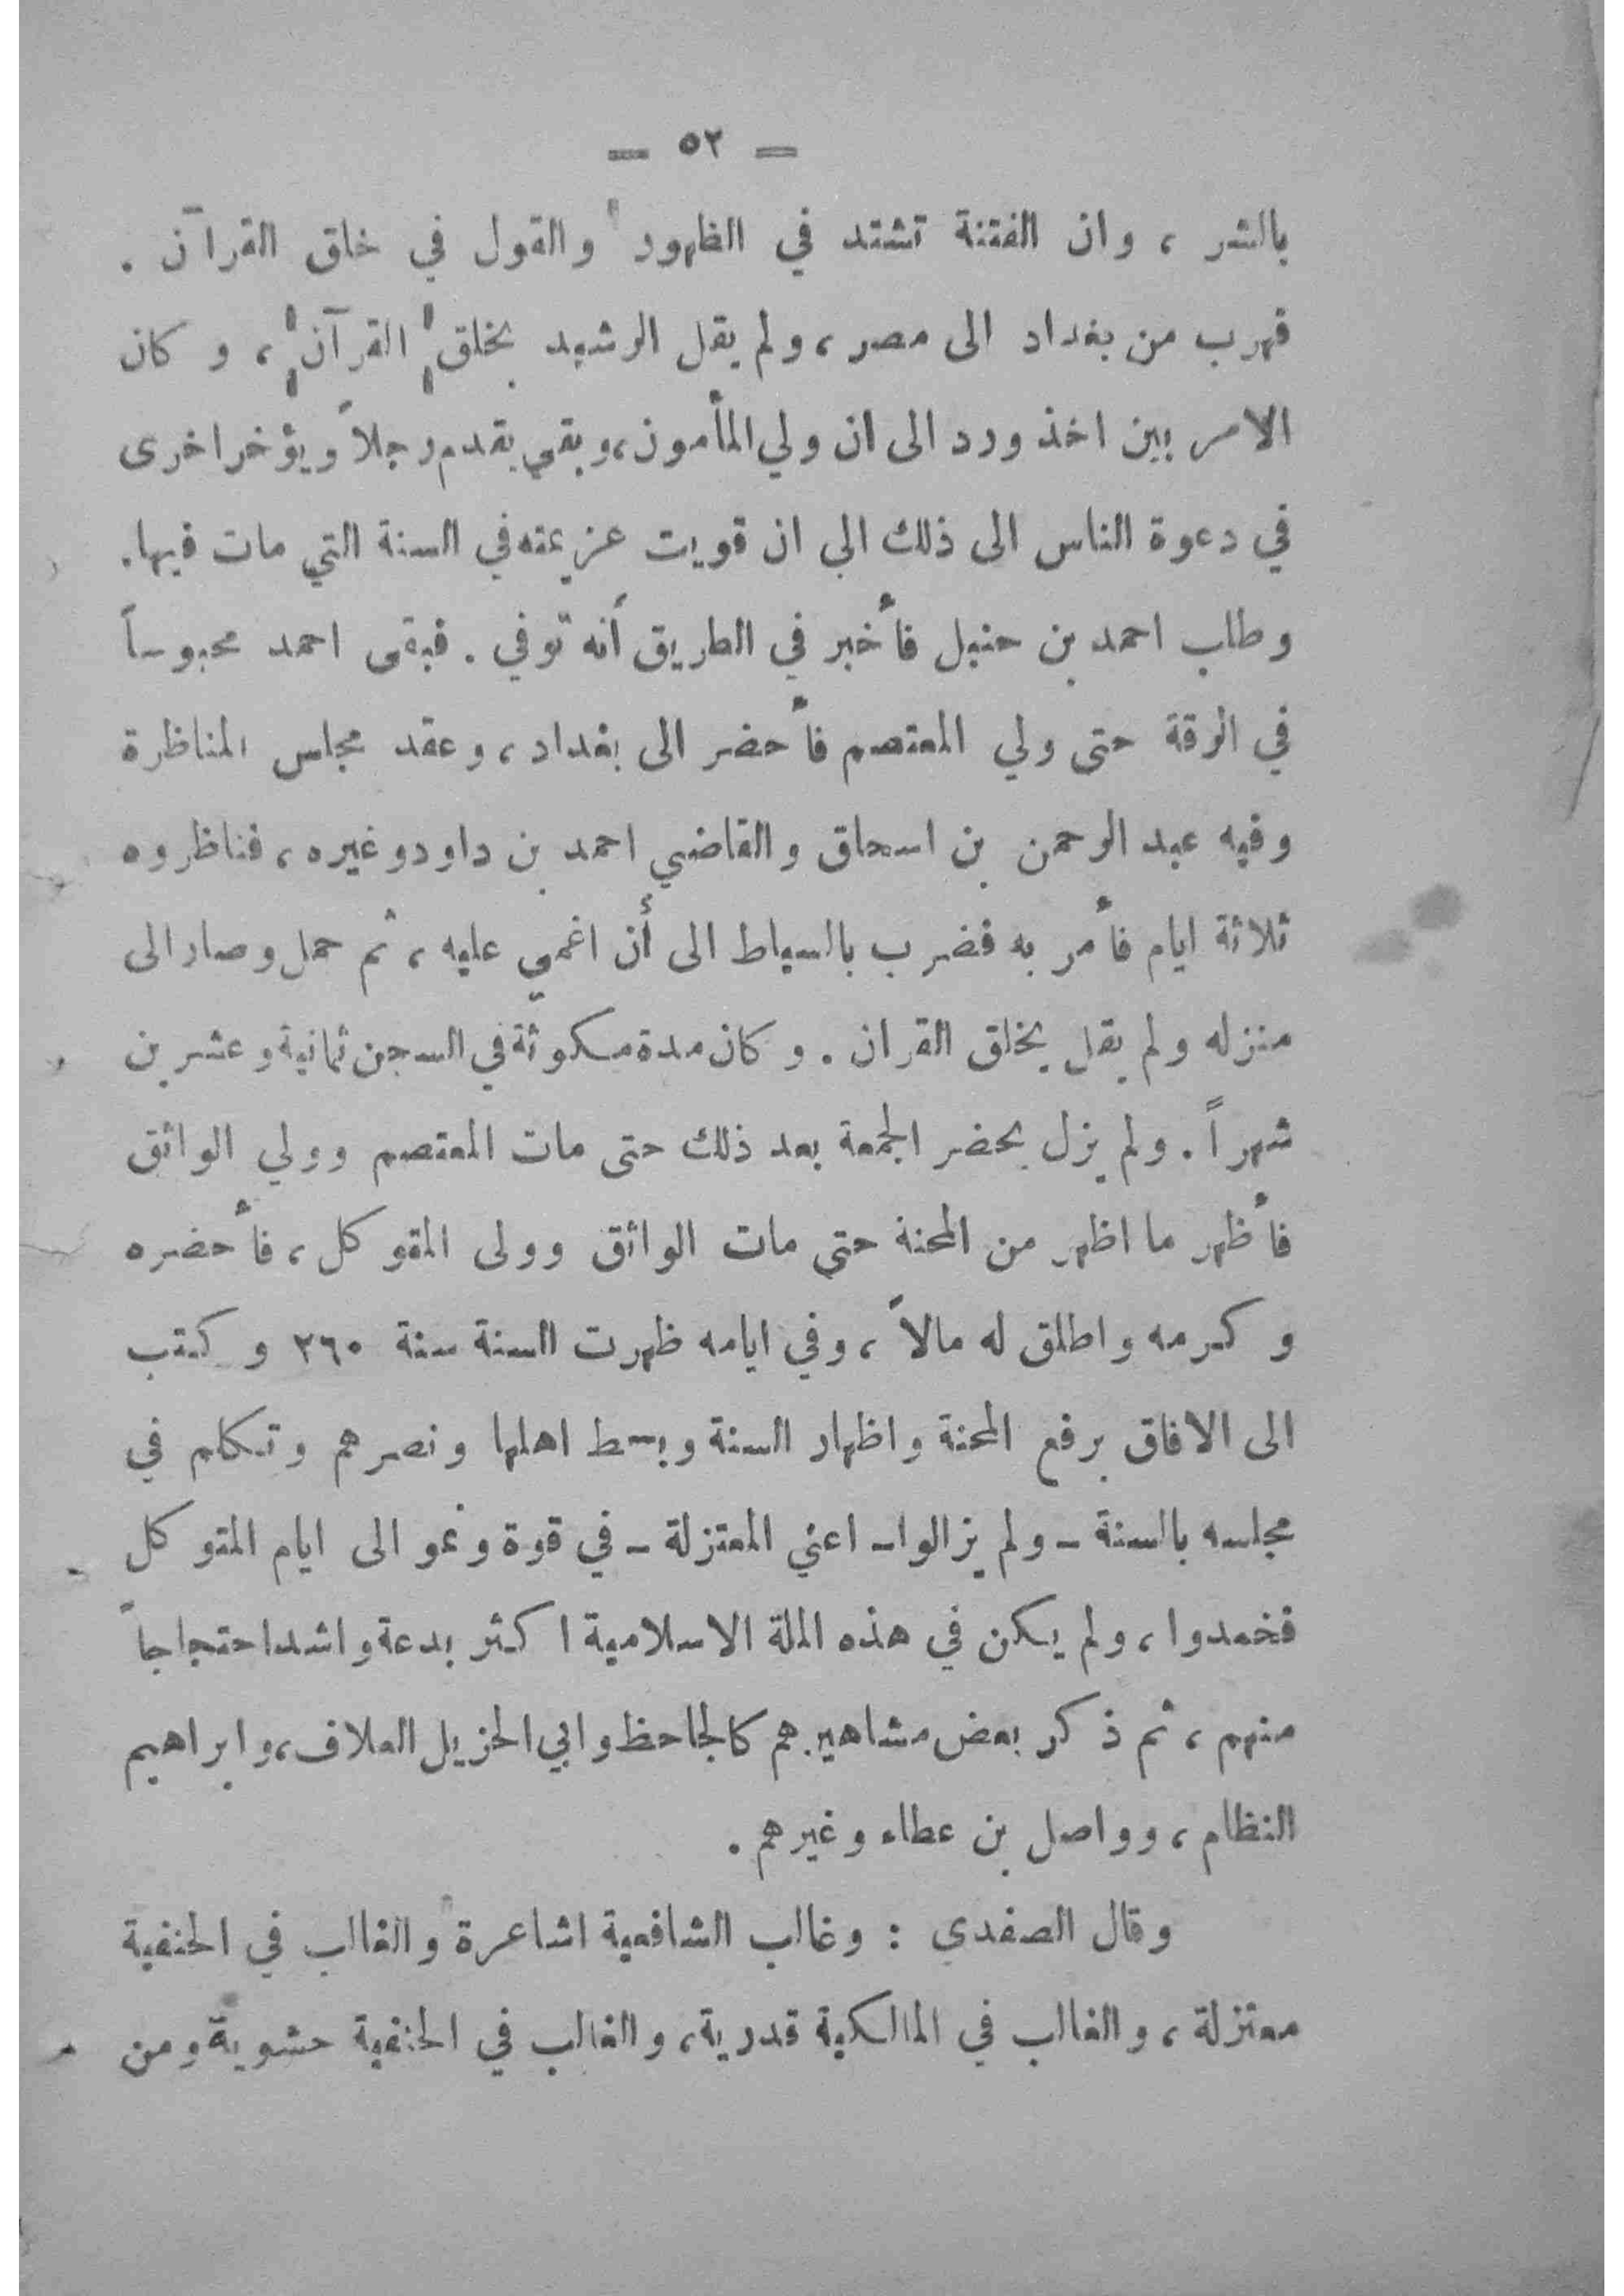 — ٥٢ —
بالشر ، وان الفتنة تشتد في الظهور والقول في خلق القرآن .
فهرب من بغداد الى مصر ، ولم يقل الرشيد بخلق القرآن ، وكان
الامر بين اخذ ورد الى ان ولي المأمون ، وبقي يقدم رجلاً ويؤخر اخرى
في دعوة الناس الى ذلك الى ان قويت عزيمته في السنة التي مات فيها .
وطلب احمد بن حنبل فأخبر في الطريق أنه توفي . فبقى احمد محبوساً
في الرقة حتى ولي المعتصم فأحضر الى بغداد ، وعقد مجلس المناظرة
وفيه عبد الرحمن بن اسحاق والقاضي احمد بن داود وغيره ، فناظروه
ثلاثة ايام فأمر به فضرب بالسياط الى أن اغمي عليه ، ثم حمل وصار الى
منزله ولم يقل بخلق القران . وكان مدة مكوثة في السجن ثمانية وعشرين
شهراً . ولم يزل يحضر الجمعة بعد ذلك حتى مات المعتصم وولي الواثق
فأظهر ما اظهر من المحنة حتى مات الواثق وولى المتوكل ، فأحضره
وكرمه واطلق له مالاً ، وفي ايامه ظهرت السنة سنة ٢٦٠ وكتب
الى الافاق برفع المحنة واظهار السنة وبسط اهلها ونصرهم وتكلم في
مجلسه بالسنة ـ ولم يزالوا ـ اعني المعتزلة ـ في قوة ونمو الى ايام المتوكل
فخمدوا ، ولم يكن في هذه الملة الاسلامية اكثر بدعة واشد احتجاجاً
منهم ، ثم ذكر بعض مشاهيرهم كالجاحظ وابي الحزيل العلاف ، وابراهيم
النظام ، وواصل بن عطاء وغيرهم .
وقال الصفدي : وغالب الشافعية اشاعرة والغالب في الحنفية
معتزلة ، والغالب في المالكية قدرية ، والغالب في الحنفية حشوية ومن